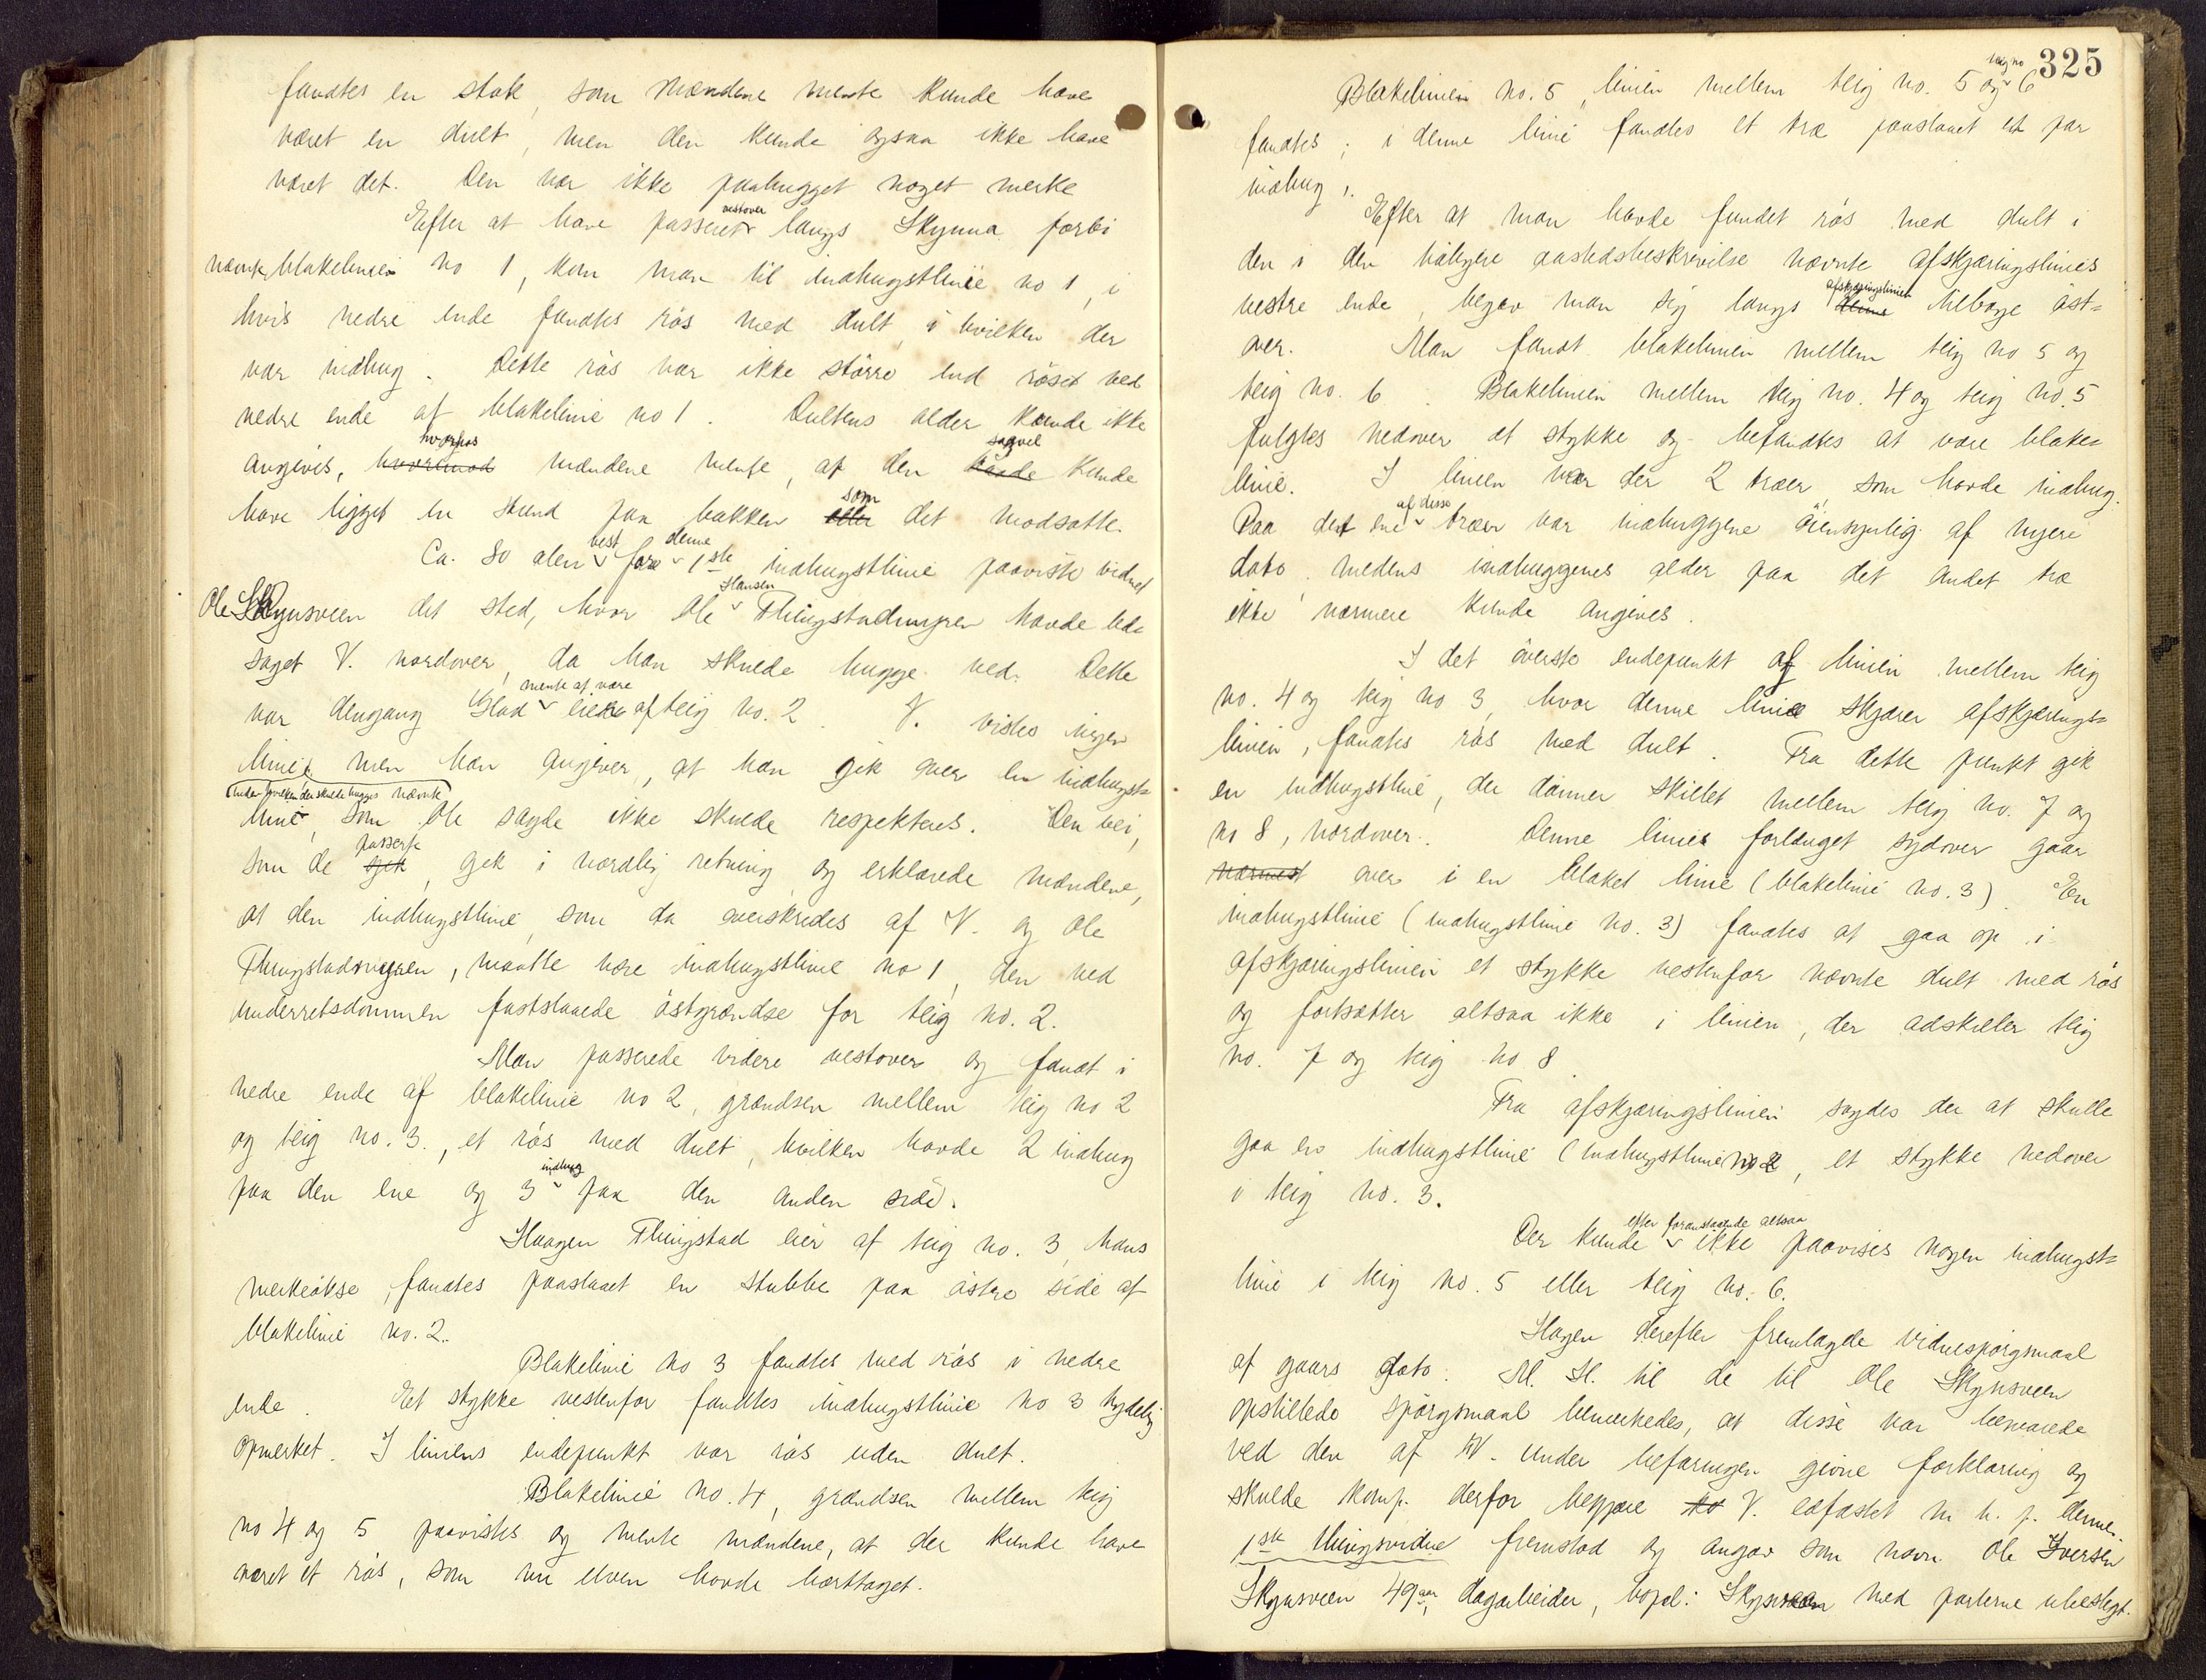 fandtes en stok, som mændene mente kunde have
været en dult, men den kunde ogsaa ikke have
været det. Den var ikke paahugget noget merke
Efter at have passeret vestover langs Skynna forbi
nævnte blakelinie no 1, kom man til indhugstlinie no 1, i
hvis nedre ende fandtes rös med dult, i hvilken der
var indhug. Dette rös var ikke större end röset ved
nedre ende af blakelinie no 1. Dultens alder kunde ikke
angives, hvorhos mændene mente, at den saavel kunde
have ligget en stund paa bakken som det modsatte.
Ca. 80 alen vest for denne 1ste indhugstlinie paaviste vidnet
Ole Skynsveen det sted, hvor Ole Hansen Thingstadengen havde led-
saget V. nordover, da han skulde hugge ved. Dette
var dengang Glad mente at være eier af teig no. 2. V. vistes ingen
linie, men han angiver, at han gik over en indhugst-
linie, som Ole sagde ikke skulde respekteres. Den vei,
som de passerte, gik i nordlig retning og erklærede mændene,
at den indhugstlinie, som da overskredes af V. og Ole
Thingstadengen, maatte være indhugstlinie no 1, den ved
underretsdommen fastslaaede östgrændse for teig no. 2.
Man passerede videre vestover og fandt i
nedre ende af blakelinie no 2, grændsen mellem teig no 2
og teig no. 3., et rös med dult, hvilken havde 2 indhug
paa den ene og 3 indhug paa den anden side.
Haagen Thingstad eier af teig no. 3, hans
merkeökse, fandtes paaslaaet en stubbe paa östre side af
blakelinie no. 2.
Blakelinie no 3 fandtes med rös i nedre
ende. Et stykke vestenfor fandtes indhugstlinie no 3 tydelig
opmerket. I liniens endepunkt var rös uden dult.
Blakelinie no. 4, grændsen mellem teig
no 4 og 5 paavistes og mente mændene, at der kunde have
været et rös, som nu elven havde borttaget.
325
Blakelinien no. 5, linien mellem teig no. 5 og teig no 6
fandtes; i denne linie fandtes et træ paaslaaet et par
indhug.
Efter at man havde fundet rös med dult i
den i den tidligere aastedsbeskrivelse nævnte afskjæringslinies
vestre ende, begav man sig langs afskjæringslinien tilbage öst-
over. Man fandt blakelinien mellem teig no 5 og
teig no. 6. Blakelinien mellem teig no. 4 og teig no. 5
fulgtes nedover et stykke og befandtes at være blake-
linie. I linien var der 2 træer, som havde indhug.
Paa det ene af disse træer var indhuggene öiensynlig af nyere
dato, medens indhuggenes alder paa det andet træ
ikke nærmere kunde angives.
I det överste endepunkt af linien mellem teig
no. 4 og teig no 3, hvor denne linie skjærer afskjærings-
linien, fandtes rös med dult. Fra dette punkt gik
en indhugstlinie, der danner skillet mellem teig no. 7 og
no 8, nordover. Denne linies forlænget sydover gaar
nærmest over i en blaket linie (blakelinie no. 3). En
indhugstlinie (indhugstlinie no. 3) fandtes at gaa op i
afskjæringslinien et stykke vestenfor nævnte dult med rös
og fortsætter altsaa ikke i linien, der adskiller teig
no. 7 og teig no 8.
Fra afskjæringslinien sagdes der at skulle
gaa en indhugstlinie (indhugstlinie no 2, et stykke nedover
i teig no. 3.
Der kunde efter foranstaaende altsaa ikke paavises nogen indhugst-
linie i teig no. 5 eller teig no. 6.
Hagen derefter fremlagde vidnespörgsmaal
af gaars dato. M. H. til de til Ole Skynsveen
opstillede spörgsmaal bemerkedes, at disse var besvarede
ved den af V. under befaringen givne forklaring og
skulde komp. derfor begjære V. edfæstet m. h. p. denne.
1ste thingsvidne fremstod og angav som navn Ole Iversen
Skynsveen 49 aar, dagarbeider, bopæl: Skynsveen med parterne ubeslegt.